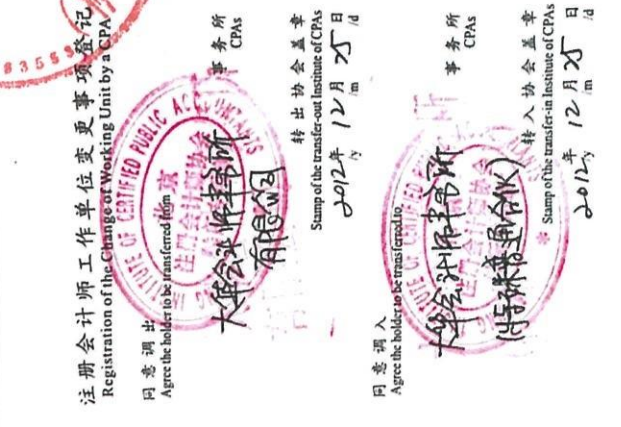 注册会计师工作单位变更事项登记
Registration of the Change of Working Unit by a CPA
同意调出
Agree the holder to be transferred from
大华会计师事务所
有限公司
事务所
CPAs
转出协会盖章
Stamp of the transfer-out Institute of CPAs
2012年 12月 25日
/y /m /d
同意调入
Agree the holder to be transferred to
大华会计师事务所
(特殊普通合伙)
事务所
CPAs
转入协会盖章
Stamp of the transfer-in Institute of CPAs
2012年 12月 25日
/y /m /d